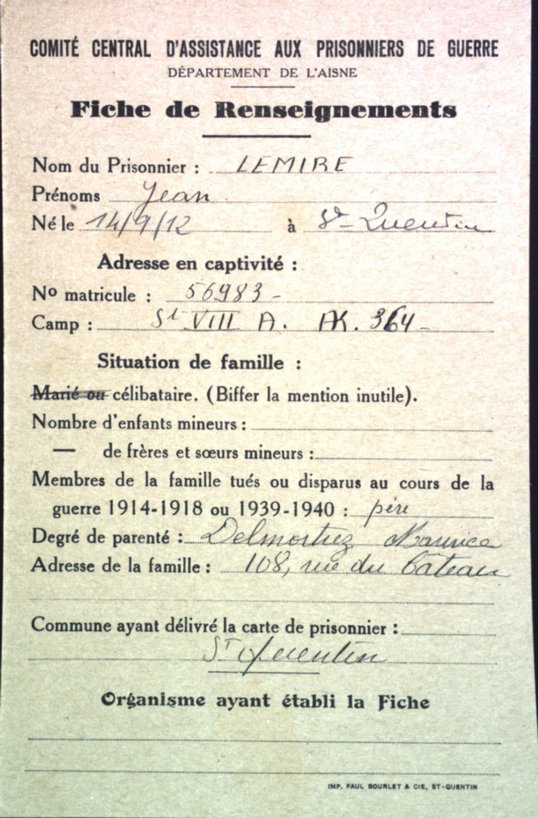 COMITÉ CENTRAL D'ASSISTANCE AUX PRISONNIERS DE GUERRE
DÉPARTEMENT DE L'AISNE
Fiche de Renseignements
Nom du Prisonnier : LEMIRE
Prénoms Jean
Né le 14/9/12 à St-Quentin
Adresse en captivité :
No matricule : 56983-
Camp : St VIII A. AK. 364-
Situation de famille :
Marié ou célibataire. (Biffer la mention inutile).
Nombre d'enfants mineurs :
— de frères et sœurs mineurs :
Membres de la famille tués ou disparus au cours de la
guerre 1914-1918 ou 1939-1940 : père
Degré de parenté : Maurice
Adresse de la famille : 108, rue du Câteau
Commune ayant délivré la carte de prisonnier :
St Quentin
Organisme ayant établi la Fiche
IMP. PAUL BOURLET & CIE, ST-QUENTIN